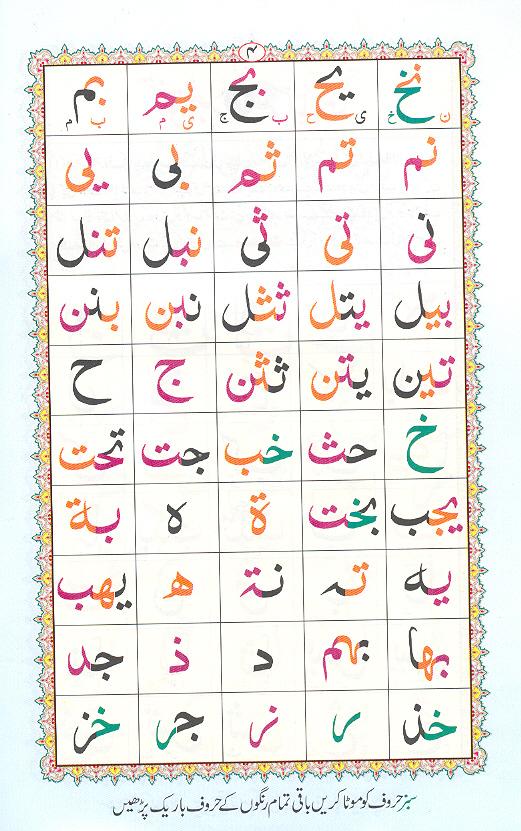 ۴
نخ یح بج یم بم
ن خ ی ح ب ج ی م ب م
نم تم ثم بی یی
نی تی ثی نبل تنل
بیل یتل ثثل نبن بنن
تین یتن ثثن ج ح
خ حث خب جت تحت
یجب بخت ة ہ بة
یہ تہ نة ھ یھب
بھا بھم د ذ جد
خذ ر نر جر خز
سبز حروف کو موٹا کریں باقی تمام رنگوں کے حروف باریک پڑھیں